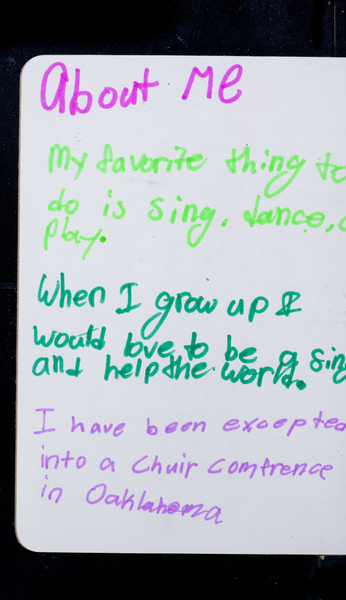 About ME
My favorite thing to
do is sing, dance,
play.
When I grow up I
would love to be a sin
and help the world.
I have been excepted
into a Chuir Comfrence
in Oaklahoma